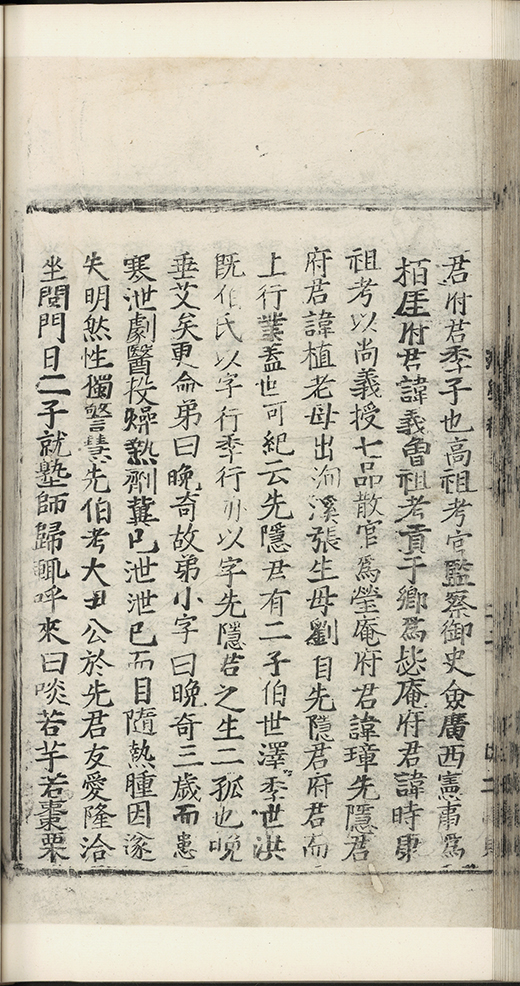 君府君季子也高祖考官監察御史僉廣西憲事爲
栢厓府君諱義曾祖考貢于鄉爲毖庵府君諱時康
祖考以尚義授七品散官爲瑩庵府君諱璋先隱君
府君諱植老母出洄溪張生母劉自先隱君府君而
上行業蓋也可紀云先隱君有二子伯世澤季世洪
既伯氏以字行季行亦以字先隱君之生二孤也晚
垂艾矣更侖弟曰晚奇故弟小字曰晚奇三歲而患
寒泄劇醫投燥熱劑冀已泄泄已而目隨熱腫因遂
失明然性獨警慧先伯考大丑公於先君友愛隆洽
坐閱門日二子就塾師歸輒呼來曰啖若芋若棗栗